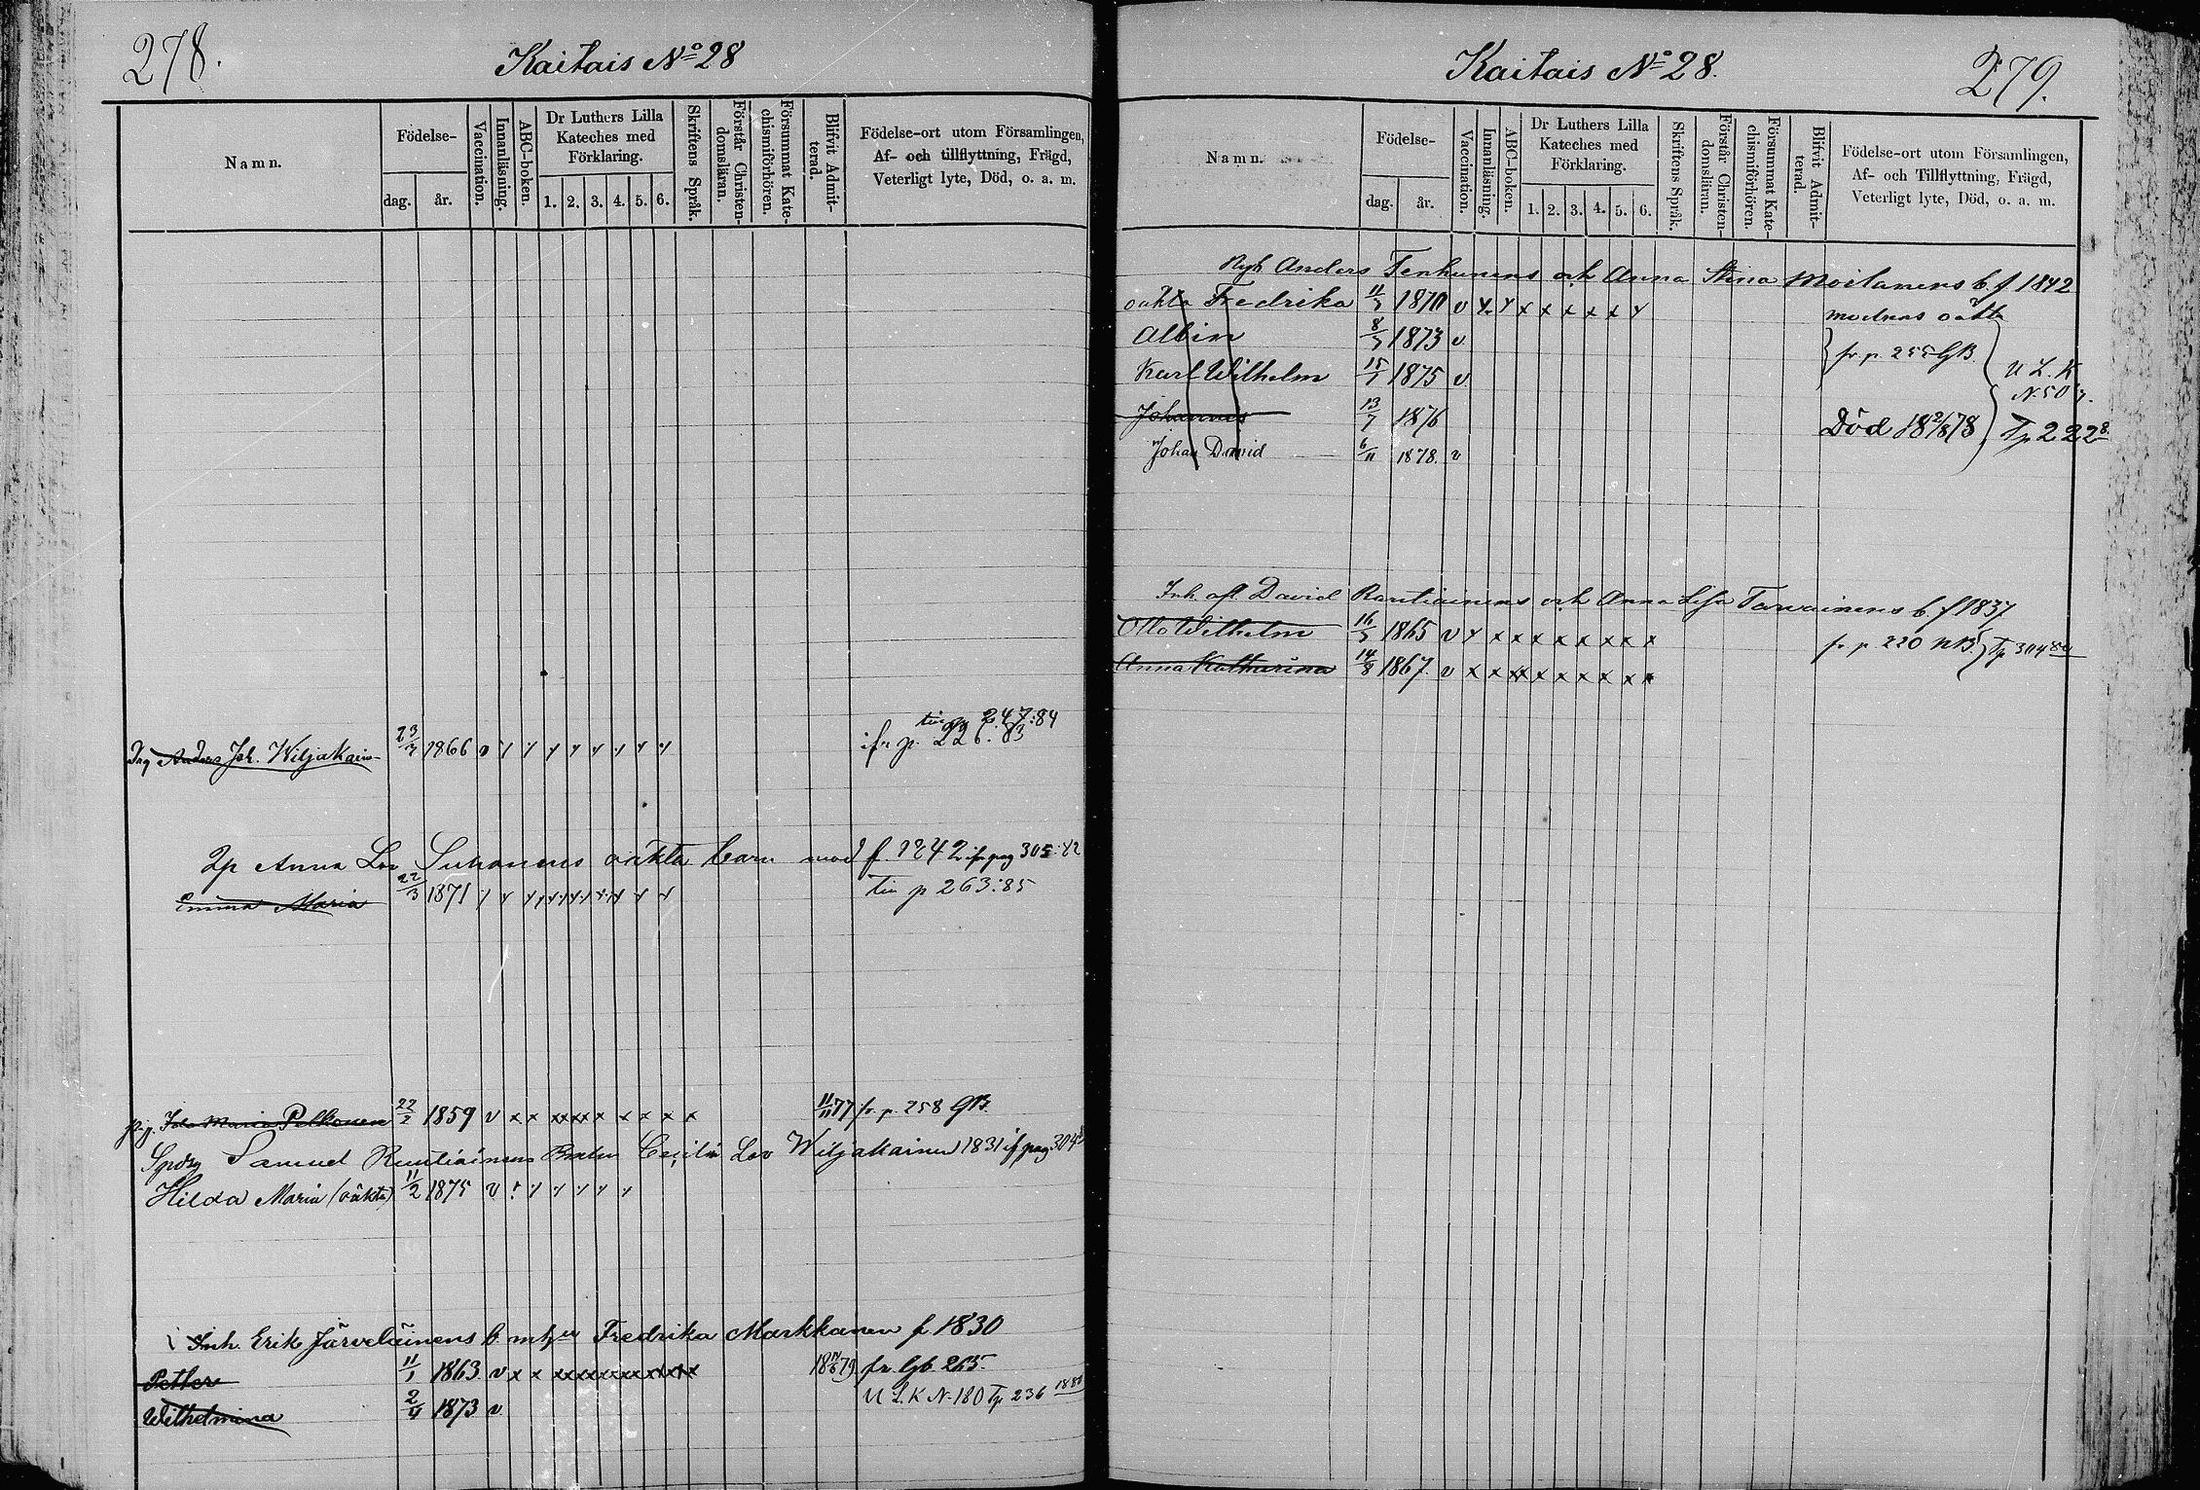 278.
Kaitais No 28
Namn.
Födelse-
dag.
år.
Vaccination.
Innanläsning.
ABC-boken.
Dr Luthers Lilla
Kateches med
Förklaring.
1. 2. 3. 4. 5. 6.
Skriftens Språk.
Förstår Christen-
domsläran.
Försummat Kate-
chismiförhören.
Blifvit Admit-
terad.
Födelse-ort utom Församlingen,
Af- och tillflyttning, Frägd,
Veterligt lyte, Död, o. a. m.
247:84
Anders Joh. Wiljakain 23/7 1866 v ifr p. 226:83
Anna Lov Suhonens oäkta barn mod f. 1842 ifr pag 305:82
Emma Maria 22/3 1871 till p 263:85
Ida Maria Pelkonen 22/2 1859 v x x x x x x x x x x x 11/11 77 fr. p. 258 GB.
Samuel Rautiainens Lov Wiljakainen 1831 if pag 304
Hilda Maria (oäkta) 11/2 1875 v
Inh. Erik Järveläinens b. m h Fredrika Markkanen f 1830
Petter 11/1 1863 v x x x x x x x x x x x fr. Gb. 265.
Wilhelmina 2/4 1873 v U L.K N-180 Tp 236
Kaitais No 28.
279.
Namn.
Födelse-
dag.
år.
Vaccination.
Innanläsning.
ABC-boken.
Dr Luthers Lilla
Kateches med
Förklaring.
1. 2. 3. 4. 5. 6.
Skriftens Språk.
Förstår Christen-
domsläran.
Försummat Kate-
chismiförhören.
Blifvit Admit-
terad.
Födelse-ort utom Församlingen,
Af- och Tillflyttning, Frägd,
Veterligt lyte, Död, o. a. m.
Anders Tenhunens och Anna Stina Moilanens b. f 1842
oäkta Fredrika 1870 v x x x x x x x x modras oäkta
Albin 1873 v
fr p. 255 GB.
Karl Wilhelm 1875 v U L. K
N. 50
Johannes 13/7 1876 Död 18 2/8 78 Tp 222
Johan David 6/11 1878. v
Inh. David Rautiainens och Anna Lisa Tarvainens b. f 1837
Otto Wilhelm 1865 v x x x x x x x x x fr p 220 NB. Tp 304
Anna Katharina 14/8 1867 v x x x x x x x x x